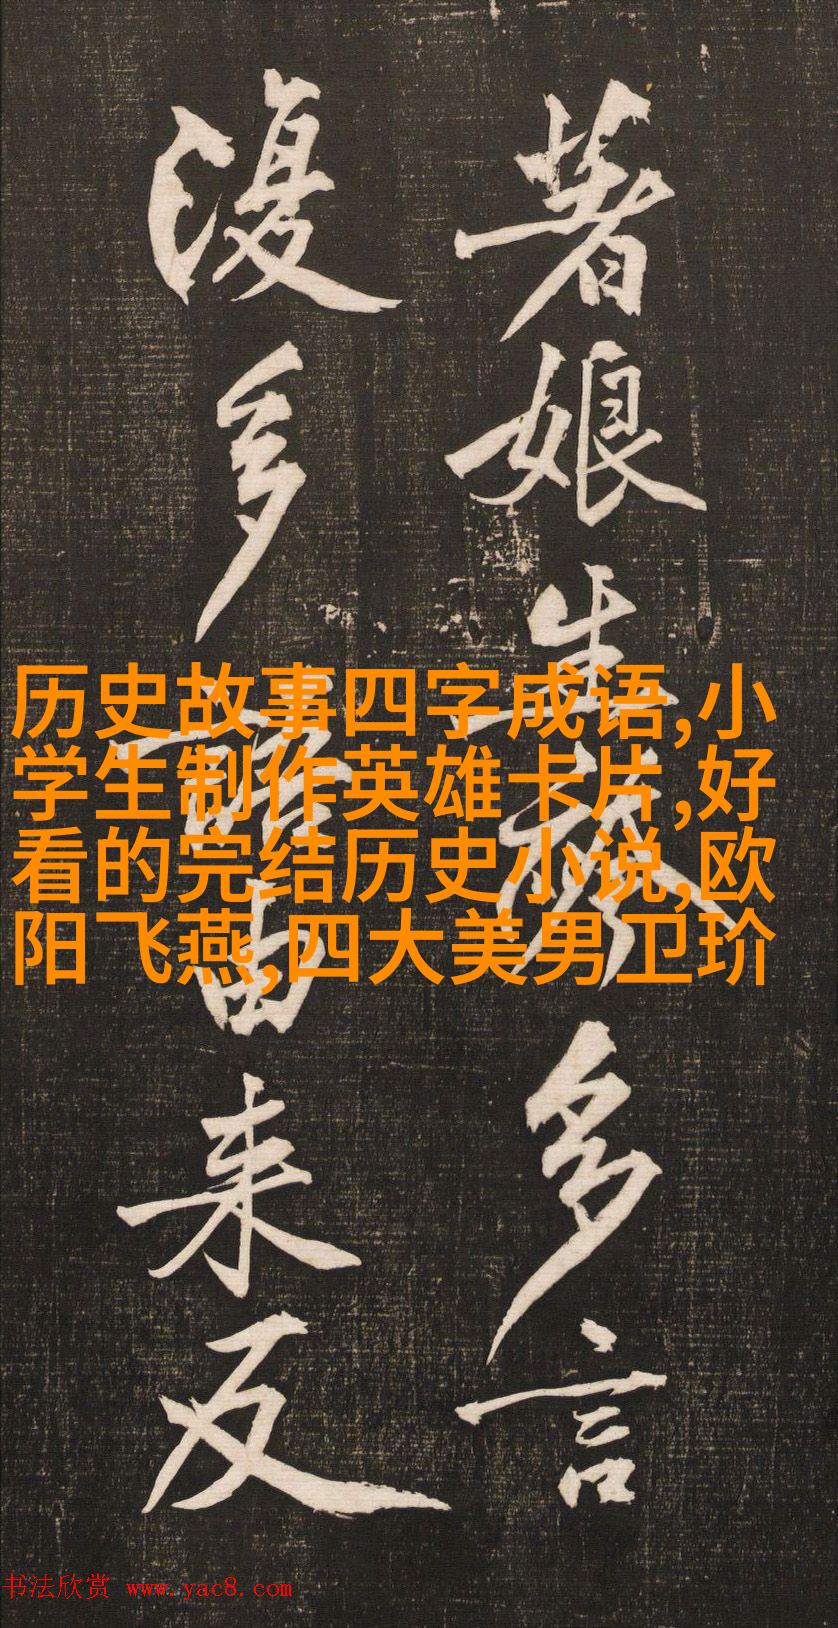 著娘生袴多言
復多語由来反
历史故事四字成语,小
学生制作英雄卡片,好
看的完结历史小说,欧
阳飞燕,四大美男卫玠
书法欣赏 www.yac8.com